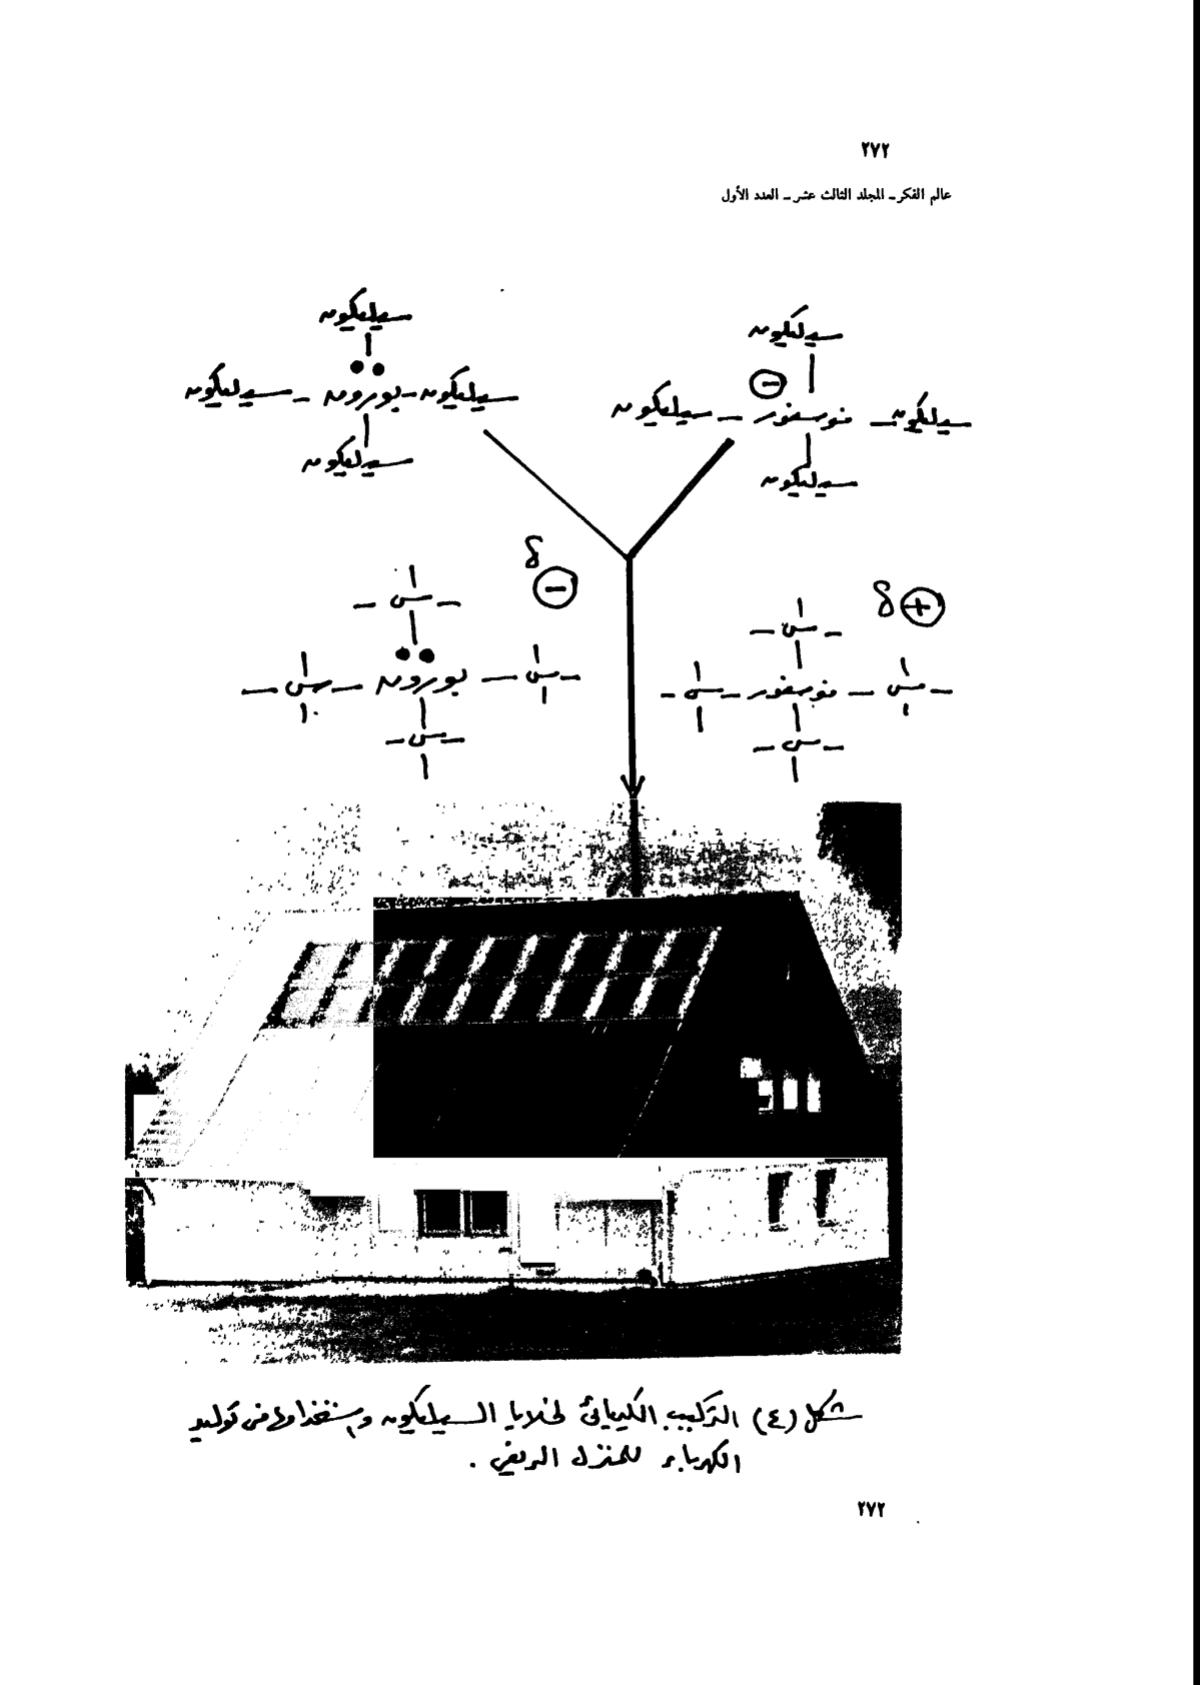 ٢٧٢
عالم الفكر ــ المجلد الثالث عشر ــ العدد الأول
سيليكون
سيليكون
سيليكون – بورون – سيليكون
سيليكون – فوسفور – سيليكون
⊖
سيليكون
سيليكون
δ ⊖
δ ⊕
س
س
س – بورون – س
س – فوسفور – س
س
س
شكل (٤) التركيب الكيميائي لخلايا السيليكون واستخدامها في توليد
الكهرباء للمنزل الريفي .
٢٧٢